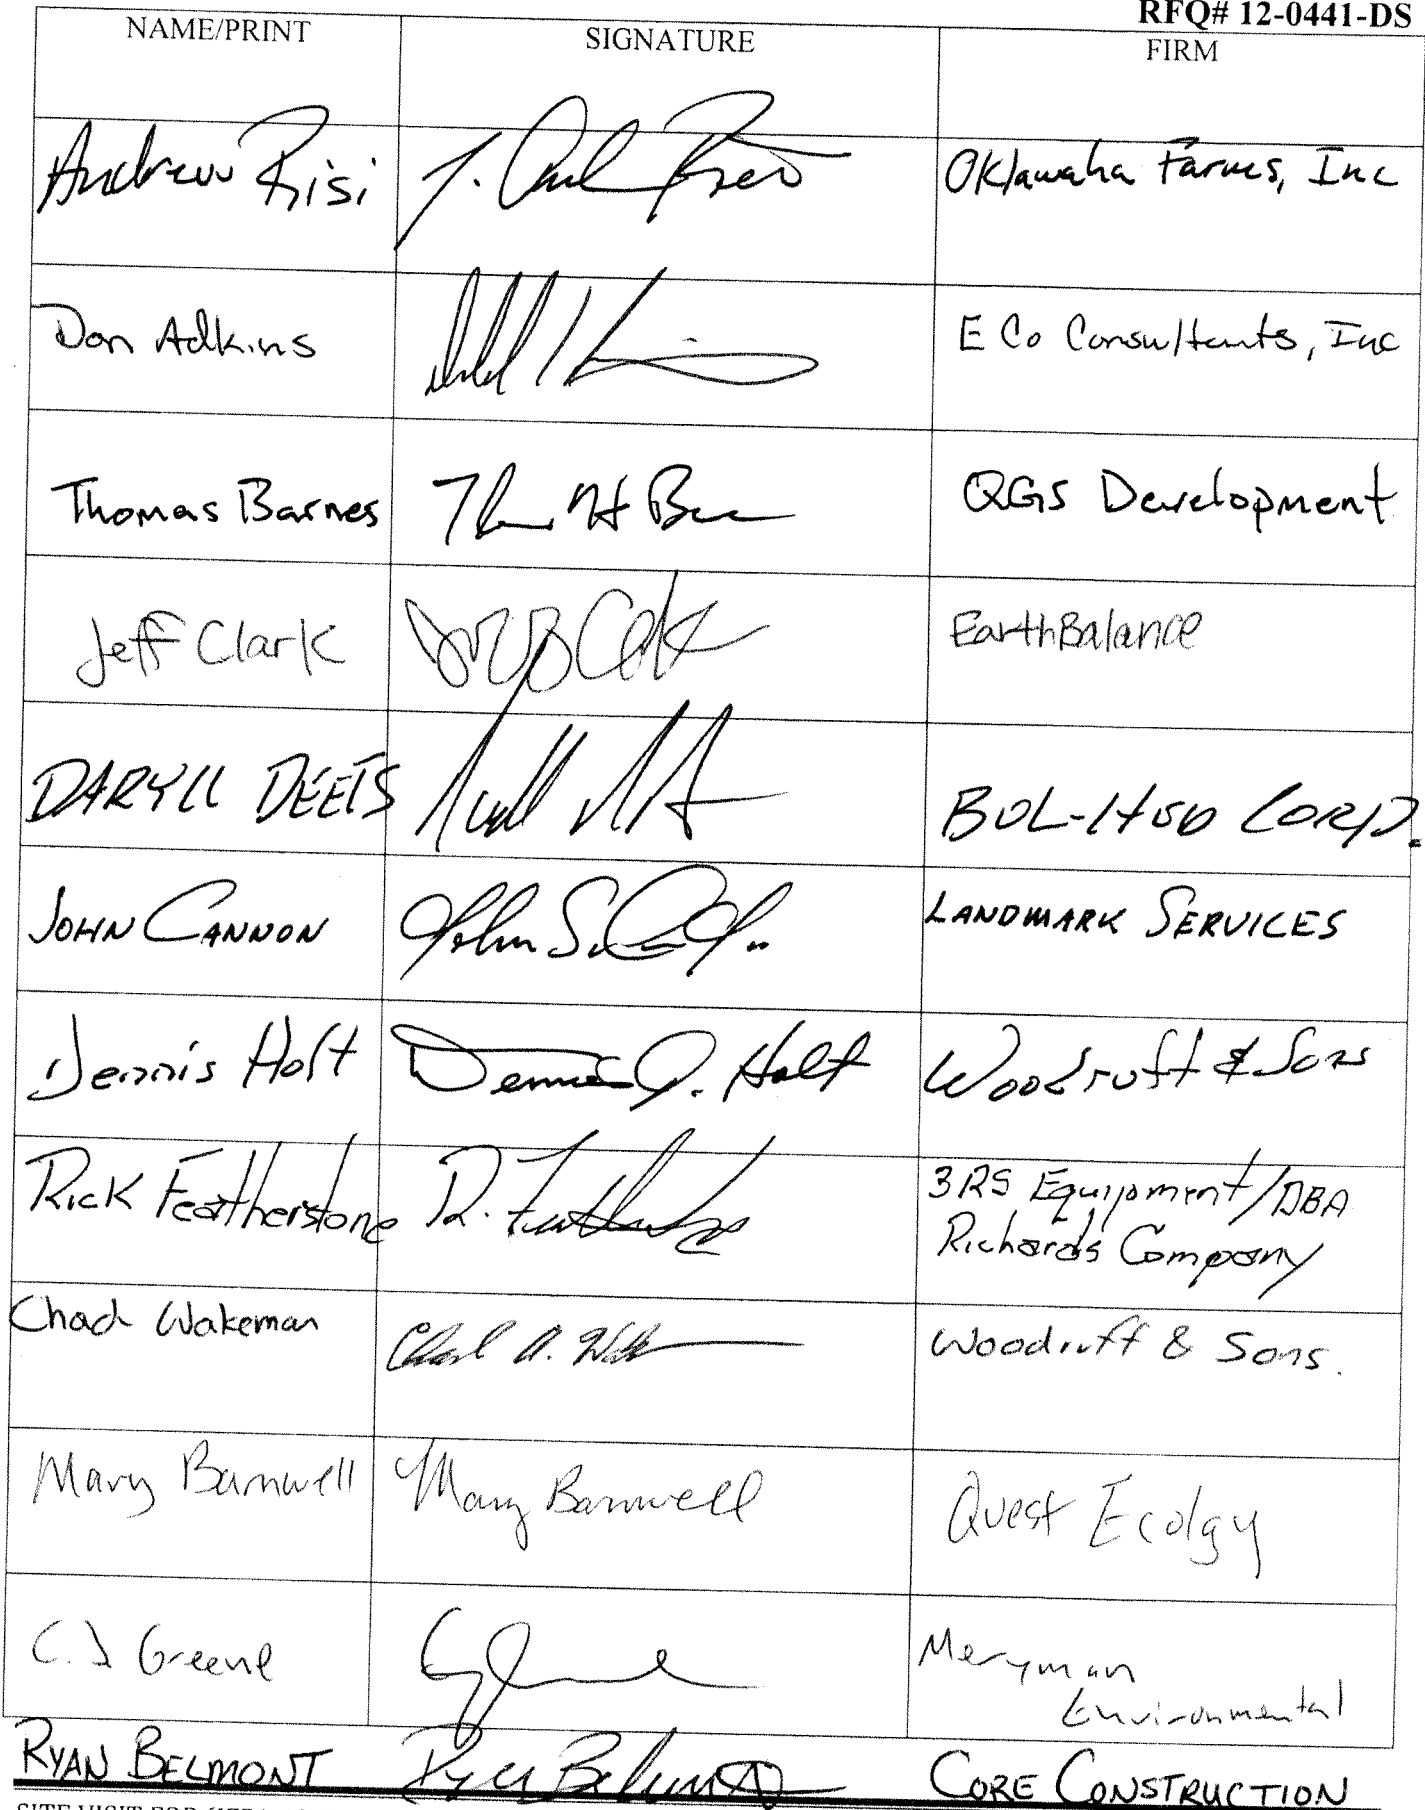 RFQ# 12-0441-DS
NAME/PRINT SIGNATURE FIRM
Andrew Risi Oklawaha Farms, Inc
Don Adkins E Co Consultants, Inc
Thomas Barnes QGS Development
Jeff Clark EarthBalance
DARYLL DEETS CORP.
JOHN CANNON John S. LANDMARK SERVICES
Dennis Holt Dennis J. Holt Woodruff & Sons
Rick Featherstone R. 3RS Equipment/DBA
Richards Company
Chad Wakeman Chad A. Woodruff & Sons.
Mary Barnwell Mary Barnwell Quest Ecolgy
C.J Greene Merryman
Environmental
RYAN BELMONT Ryan Belmont CORE CONSTRUCTION
SITE VISIT FOR